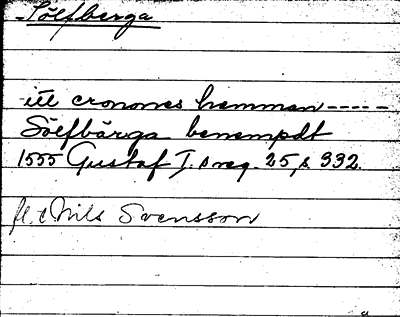 Sölfberga
itt cronones hemman-----
Sölfbärga benempdt
1555 Gustaf I:s reg. 25, s 332.
Nils Svensson